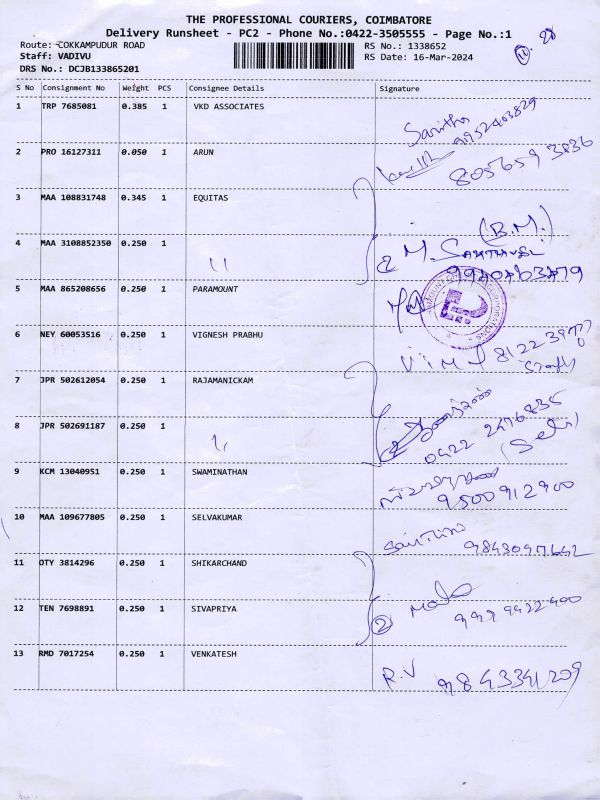 THE PROFESSIONAL COURIERS, COIMBATORE
Delivery Runsheet - PC2 - Phone No.:0422-3505555 - Page No.:1
Route: COKKAMPUDUR ROAD
RS No.: 1338652
Staff: VADIVU
RS Date: 16-Mar-2024
DRS No.: DCJB133865201
11 28
S No Consignment No Weight PCS Consignee Details Signature
1 TRP 7685081 0.385 1 VKD ASSOCIATES Saritha 9952403829
2 PRO 16127311 0.050 1 ARUN 8056593836
3 MAA 108831748 0.345 1 EQUITAS (B.M.)
4 MAA 3108852350 0.250 1 11 2 M.
5 MAA 865208656 0.250 1 PARAMOUNT
6 NEY 60053516 0.250 1 VIGNESH PRABHU
7 JPR 502612054 0.250 1 RAJAMANICKAM
8 JPR 502691187 0.250 1 0422 2476835
9 KCM 13040951 0.250 1 SWAMINATHAN 9500912900
10 MAA 109677805 0.250 1 SELVAKUMAR
11 OTY 3814296 0.250 1 SHIKARCHAND
12 TEN 7698891 0.250 1 SIVAPRIYA 2
13 RMD 7017254 0.250 1 VENKATESH R.V 9843341209